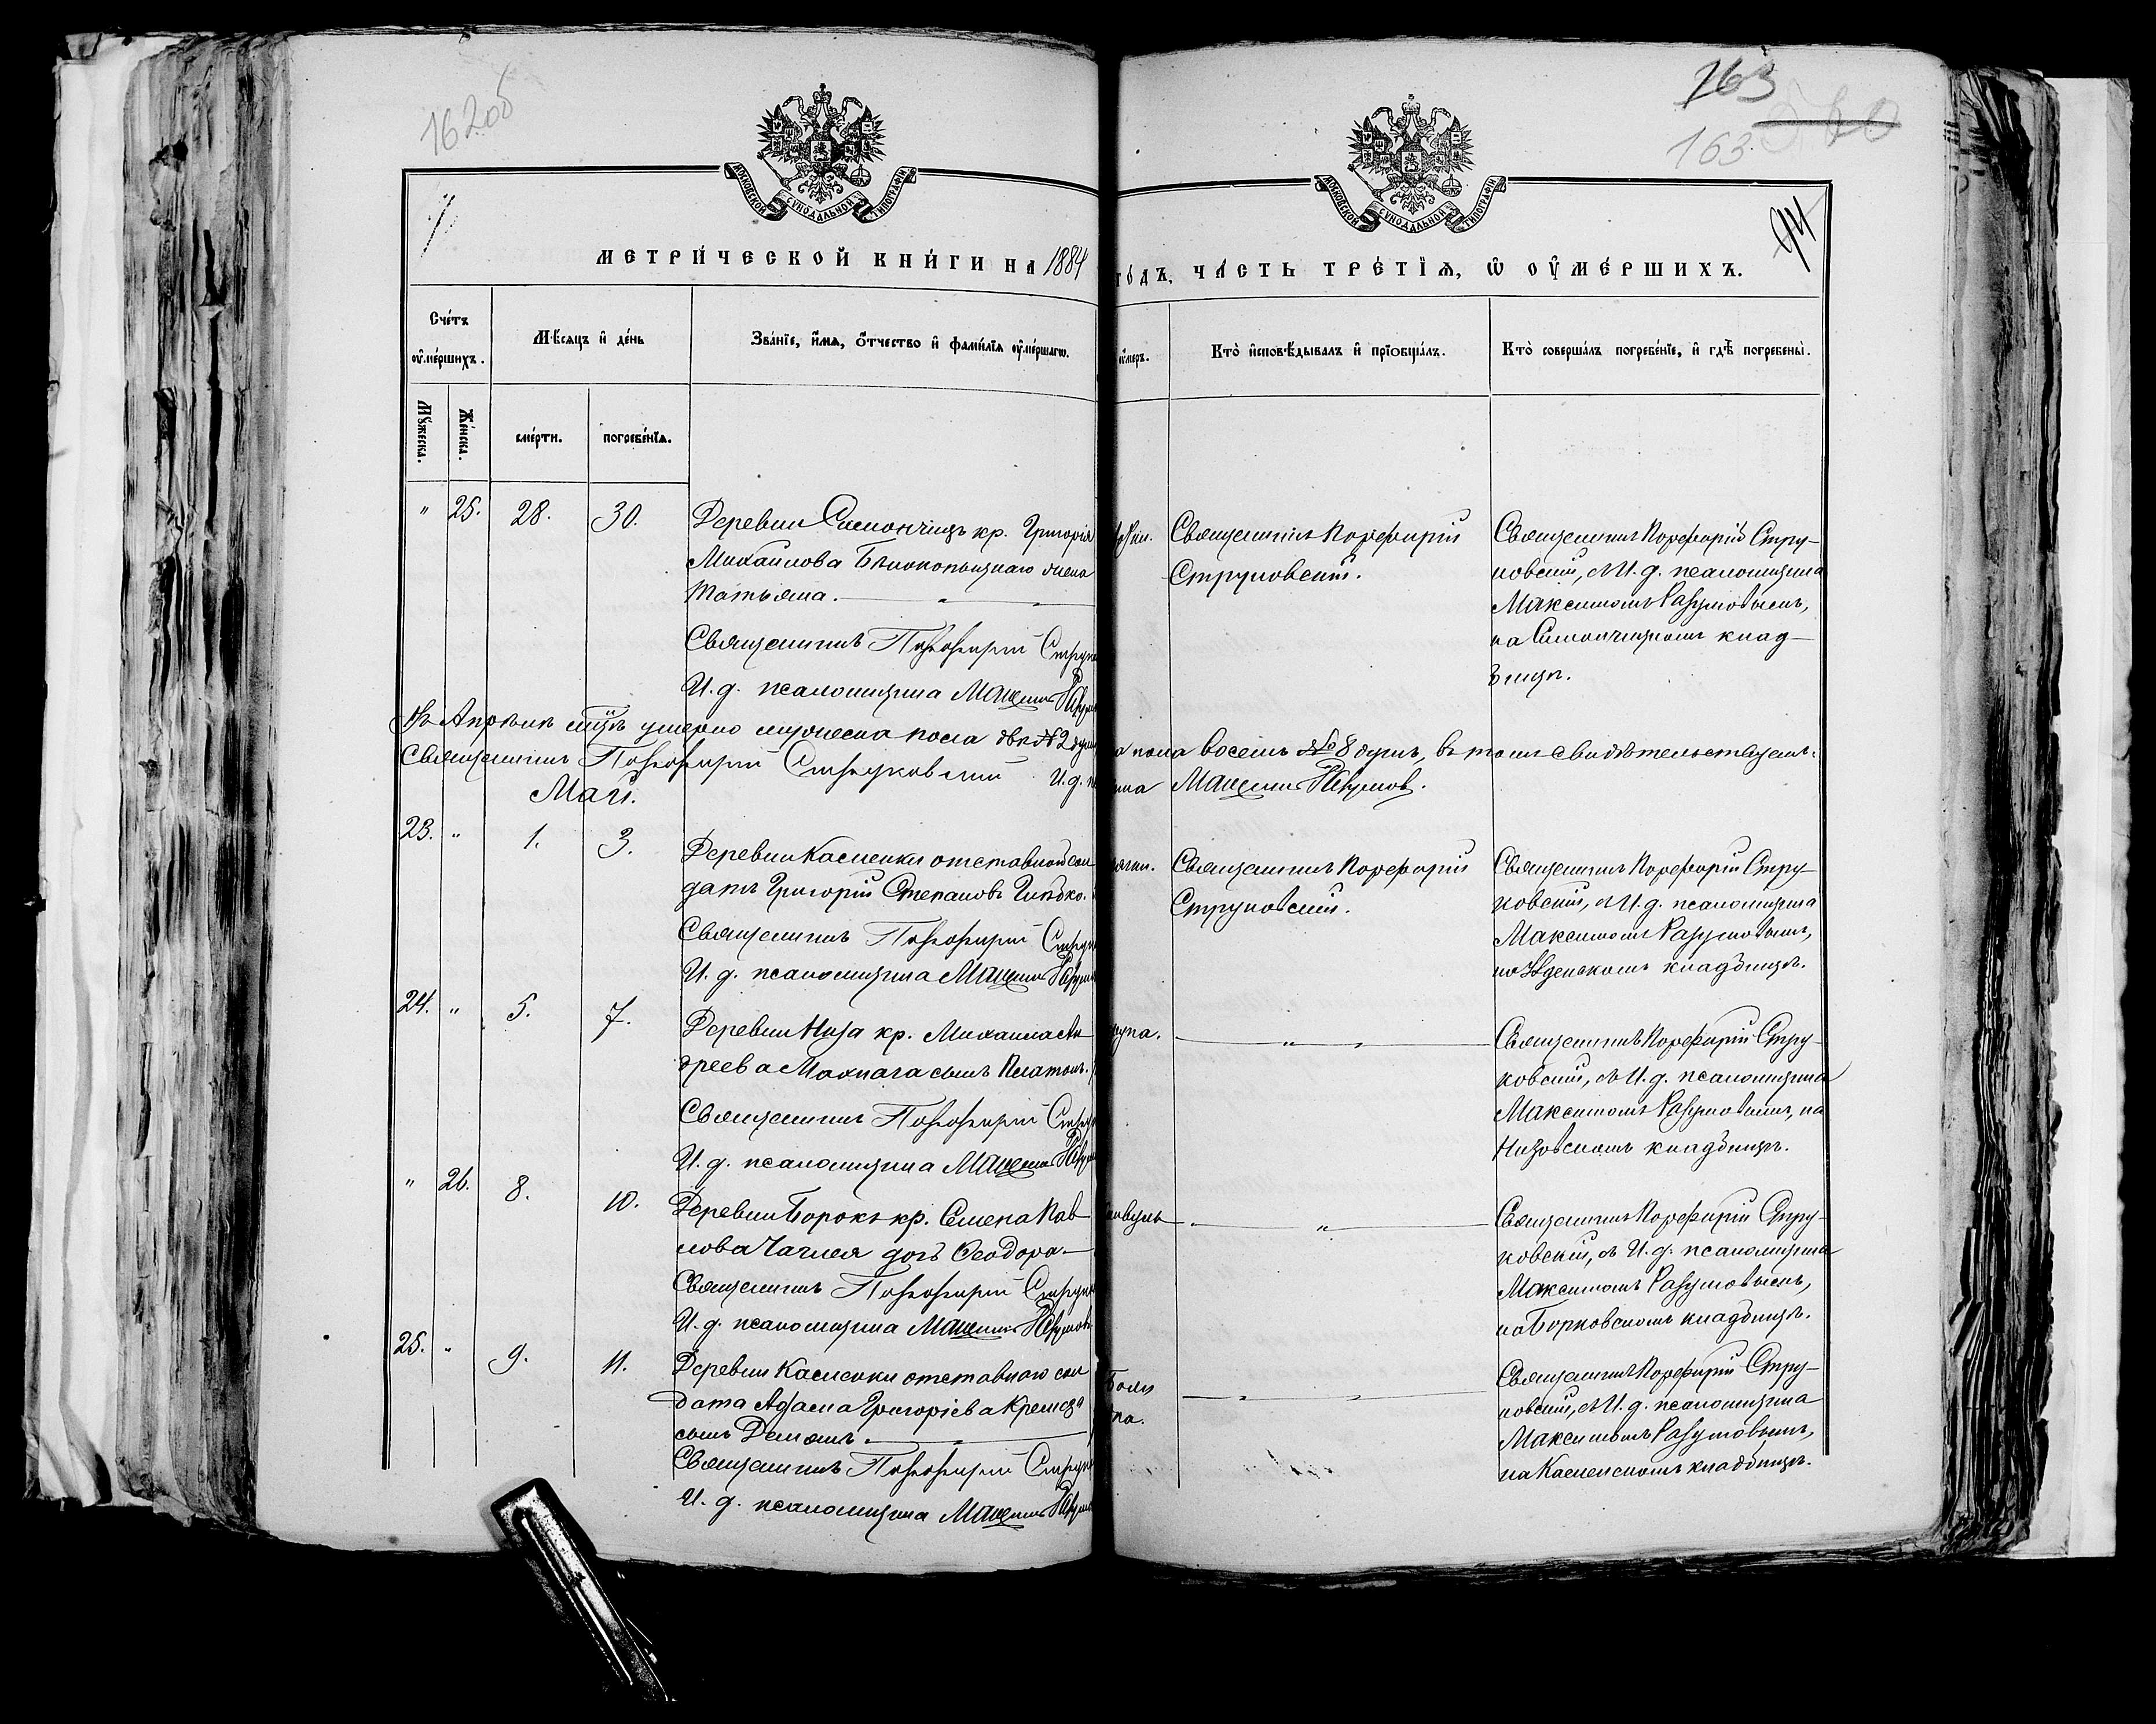 162об
163
163
МОСКОВСКОЙ СУНОДАЛЬНОЙ ТИПОГРАФІИ
МОСКОВСКОЙ СУНОДАЛЬНОЙ ТИПОГРАФІИ
МЕТРИ́ЧЕСКОЙ КНИ́ГИ НА 1884
ГО́ДЪ, ЧА́СТЬ ТРЕ́ТЇѦ, Ѡ ОУ҆МЕ́РШИХЪ.
Сче́тъ оу҆ме́ршихъ.
Мѣ́сяцъ и де́нь
Зва́нїе, и҆́мѧ, о҆́тчество и фами́лїѧ оу҆ме́ршагѡ.
Кто̀ и҆сповѣ́дывалъ и прїобща́лъ.
Кто̀ соверша́лъ погребе́нїе, и гдѣ̀ погребены̀.
Мꙋ́жеска.
Же́нска.
сме́рти.
погребе́нїѧ.
" 25. 28. 30. Деревни Симончицъ кр. Григорія
Михаилова Бѣлокопыцкаго жена
Татьяна.
Священникъ Порфирій
И. д. псаломщика Максимъ
Священникъ Порфирій
Струковскій.
Священникъ Порфирій Стру-
ковскій, съ И. д. псаломщика
Максимомъ Разумовымъ,
на Симончицкомъ клад-
бищѣ.
Въ Апрѣлѣ м̃цѣ умерло мужеска пола двѣ №2 душ
а пола восемь №8 душъ, въ томъ свидѣтельствуемъ:
Священникъ Порфирій Струковскій И. д.
Максимъ Разумовъ.
Май.
23. " 1. 3. Деревни Касценки отставной сол-
датъ Григорій Степановъ Гнѣдко.
Священникъ Порфирій
И. д. псаломщика Максимъ
Священникъ Порфирій
Струковскій.
Священникъ Порфирій Стру-
ковскій, съ И. д. псаломщика
Максимомъ Разумовымъ,
кладбищѣ.
24. " 5. 7. Деревни Низа кр. Михаила Ан-
дреева Махнача сынъ Платонъ.
Священникъ Порфирій
И. д. псаломщика Максимъ
Священникъ Порфирій Стру-
ковскій, съ И. д. псаломщика
Максимомъ Разумовымъ, на
Низовскомъ кладбищѣ.
" 26. 8. 10. Деревни Борокъ кр. Семена Пав-
лова дочь Ѳеодора
Священникъ Порфирій
И. д. псаломщика Максимъ Разумовъ
Священникъ Порфирій Стру-
ковскій, съ И. д. псаломщика
Максимомъ Разумовымъ,
на Борковскомъ кладбищѣ.
25. " 9. 11. Деревни Касценки отставного сол
дата Адама Григоріева
сынъ Демьянъ
Священникъ Порфирій
И. д. псаломщика Максимъ
Священникъ Порфирій Стру-
ковскій, съ И. д. псаломщика
Максимомъ Разумовымъ,
на Касценскомъ кладбищѣ.